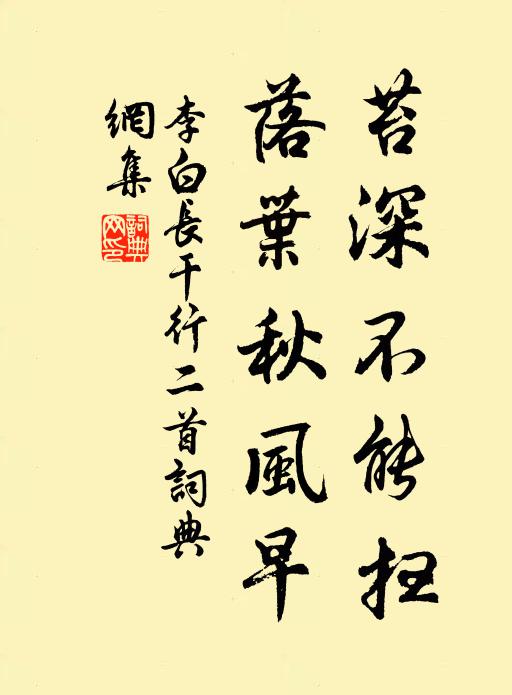 苔深不能掃
落葉秋風早
李白長干行二首詞典
網集
詞典
网印